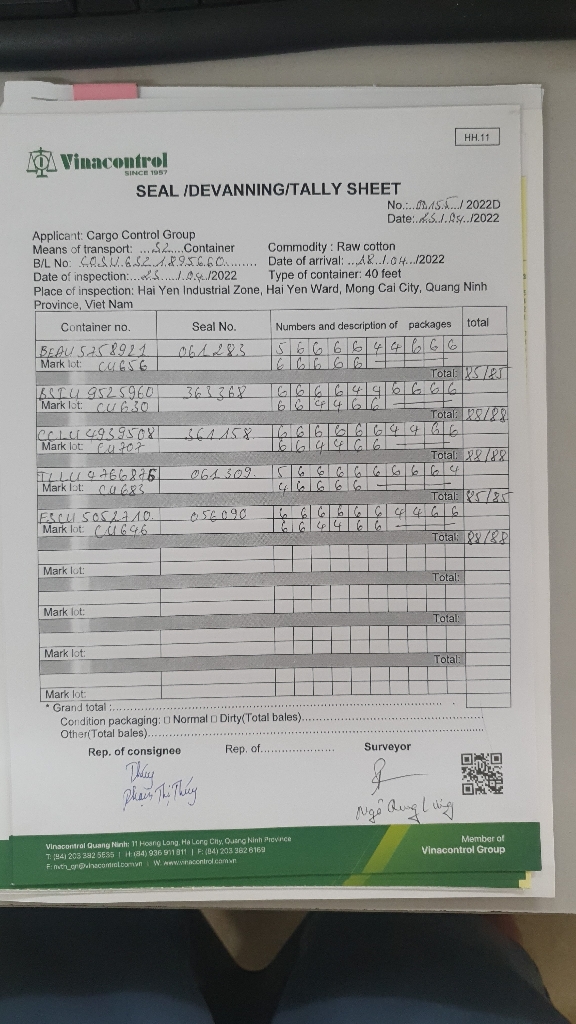 HH.11
Vinacontrol
SINCE 1957
SEAL /DEVANNING/TALLY SHEET
No.:..0155../2022D
Date:.25./.04./2022
Applicant: Cargo Control Group
Means of transport: ....52....Container
Commodity : Raw cotton
B/L No: COSU6321895660........
Date of arrival: ..18./.04.../2022
Date of inspection:...25...../.04./2022
Type of container: 40 feet
Place of inspection: Hai Yen Industrial Zone, Hai Yen Ward, Mong Cai City, Quang Ninh
Province, Viet Nam
Container no. Seal No. Numbers and description of packages total
BEAU 5758921 061283 5 6 6 6 6 4 4 6 6 6
Mark lot: CU656 6 6 6 6 6
Total: 85/85
BSIU 9525960 363368 6 6 6 6 4 4 6 6 6 6
Mark lot: CU630 6 6 4 4 6 6
Total: 88/88
CCLU 4939508 361158 6 6 6 6 6 6 4 4 6 6
Mark lot: CU707 6 6 4 4 6 6
Total: 88/88
TLLU 4766875 061309. 5 6 6 6 6 6 6 6 6 4
Mark lot: CU683 4 6 6 6 6
Total: 85/85
FSCU 5052710. 056090 6 6 6 6 6 6 4 4 6 6
Mark lot: CU646 6 6 4 4 6 6
Total: 88/88
Mark lot:
Total:
Mark lot:
Total:
Mark lot:
Total:
Mark lot:
* Grand total :
Condition packaging: □ Normal □ Dirty(Total bales)
Other(Total bales)
Rep. of consignee Rep. of.................... Surveyor
Thúy
Phạm Thị Thúy
Ngô Quang
Vinacontrol Quang Ninh: 11 Hoang Long, Ha Long City, Quang Ninh Province
T: (84) 203 382 5635 | H: (84) 936 911 811 | F: (84) 203 382 6169
W: www.vinacontrol.com.vn
Member of
Vinacontrol Group